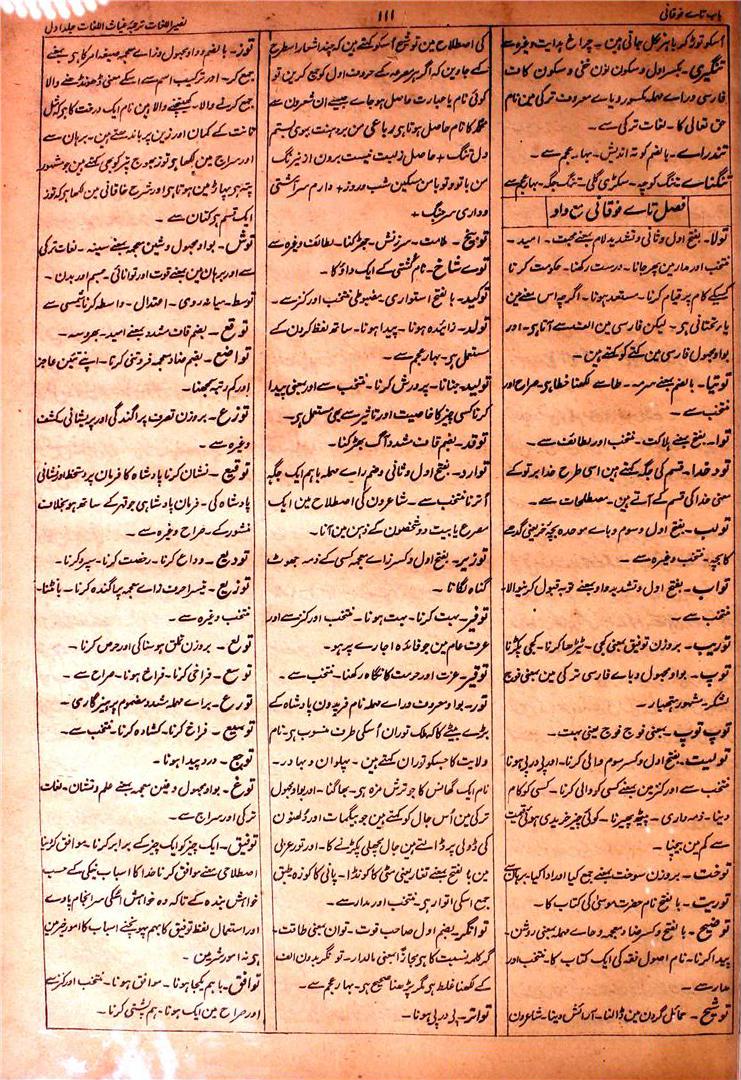 باب تاے فوقانی
۱۱۱
نصیر اللغات ترجمۂ غیاث اللغات جلد اول
اُسکو توڑکر باہر نکل جاتی ہین۔ چراغ ہدایت وغیرہ سے
تنگیری۔ بکسر اول و سکون نون خفی و سکون کاف
فارسی و راے مہملہ مکسور و یاے معروف ترکی مین نام
حق تعالی کا۔ لغات ترکی سے۔
تندراے۔ بالضم کوتہ اندیش۔ بہار عجم سے۔
تنگناے۔ تنگ کوچہ۔ سکڑی گلی۔ تنگ جگہ۔ بہار عجم سے
فصل تاے فوقانی مع واو
تولا۔ بفتح اول و ثانی و تشدید لام بمعنے محبت۔ امید۔
منتخب اور مدار مین پھر جانا۔ درست رکھنا۔ حکومت کرنا
کسیکے کام پر قیام کرنا۔ مستعد ہونا۔ اگرچہ اس معنے مین
یاء تحتانی ہی۔ لیکن فارسی مین الف سے آتا ہی۔ اور
بواو مجہول فارسی مین کتے کو کہتے ہین۔
توتیا۔ بالضم بمعنے سرمہ۔ طا سے لکھنا خطا ہی۔ صراح اور
منتخب سے۔
توا۔ بفتح بمعنے ہلاکت۔ منتخب اور لطائف سے۔
تود خدا۔ قسم کی جگہ کہتے ہین اسی طرح خدا بر تو کے
معنی خدا کی قسم کے آتے ہین۔ مصطلحات سے۔
تولب۔ بفتح اول و سوم و باے موحدہ بچہ خر یعنی گدھے
کا بچہ۔ منتخب وغیرہ سے۔
تواب۔ بفتح اول و تشدید واو بمعنے توبہ قبول کرنیوالا۔
منتخب سے۔
توریب۔ بروزن توفیق بمعنی کجی۔ ٹیڑھا کرنا۔ کجی پکڑنا
توپ۔ بواو مجہول و باے فارسی ترکی مین بمعنی فوج
لشکر۔ مشہور ہتھیار۔
توپ توپ۔ بمعنی فوج فوج یعنی بہت۔
تولیت۔ بفتح اول و کسر سوم والی کرنا۔ اور پی در پی ہونا
منتخب سے اور کنز مین بمعنے کسی کو والی کرنا۔ کسی کو کام
دینا۔ ذمہ داری۔ پیٹھ پھیرنا۔ کوئی چیز خریدی ہوئی قیمت
سے کم مین بیچنا۔
توخت۔ بروزن سوخت بمعنے جمع کیا اور ادا کیا۔ برہان سے
توریت۔ بالفتح نام حضرت موسی کی کتاب کا۔
توضیح۔ بالفتح و کسر ضاد معجمہ و حاے مہملہ بمعنی روشن۔
پیدا کرنا۔ نام اصول فقہ کی ایک کتاب کا۔ منتخب اور
مدار سے۔
توشیح۔ حمائل گردن مین ڈالنا۔ آرائش دینا۔ شاعرون
کی اصطلاح مین توشیح اُسکو کہتے ہین کہ چند اشعار اسطرح
کے جاوین کہ اگر ہر مصرعہ کے حروف اول کو جمع کرین تو
کوئی نام یا عبارت حاصل ہو جاے جیسے ان شعرون سے
محمد کا نام حاصل ہوتا ہی رباعی من بر دہنت بوی بستم
دل تنگ + حاصل زلبت نیست برون از نیرنگ
من با تو و تو با من مسکین شب و روز + دارم سر آشتی
و داری سر جنگ +
توبیخ۔ ملامت۔ سرزنش۔ جھڑکنا۔ لطائف وغیرہ سے
توے شاخ۔ نام کُشتی کے ایک داؤ کا۔
توکید۔ بالفتح استواری۔ مضبوطی منتخب اور کنز سے۔
تولد۔ زائیدہ ہونا۔ پیدا ہونا۔ ساتھ لفظ کردن کے
مستعمل ہی۔ بہار عجم سے۔
تولید۔ جنانا۔ پرورش کرنا۔ منتخب سے اور بمعنی پیدا
کرنا کسی چیز کا خاصیت اور تاثیر سے بھی مستعمل ہی۔
توقد۔ بضم قاف مشدد آگ بھڑکنا۔
توارد۔ بفتح اول و ثانی و ضم راے مہملہ باہم ایک جگہ
اُترنا منتخب سے۔ شاعرون کی اصطلاح مین ایک
مصرع یا بیت دو شخصون کے ذہن مین آنا۔
توزیر۔ بفتح اول و کسر زاے معجمہ کسی کے ذمہ جھوٹ
گناہ لگانا۔
توفیر۔ بہت کرنا۔ بہت ہونا۔ منتخب اور کنز سے اور
عرف عام مین جو فائدہ اجارے پر ہو۔
توقیر۔ عزت اور حرمت کا نگاہ رکھنا۔ منتخب سے۔
تور۔ بواو معروف و راے مہملہ نام فریدون بادشاہ کے
بڑے بیٹے کا کہ ملک توران اُسکی طرف منسوب ہی۔ نام
ولایت کا جسکو توران کہتے ہین۔ پہلوان و بہادر۔
نام ایک گھانس کا جو ترش مزہ ہی۔ بھاگنا۔ اور بواو مجہول
ترکی مین اُس جال کو کہتے ہین جو بیگمات اور دُلھنون
کی ڈولی پر ڈالتے ہین جال مچھلی پکڑنے کا۔ اور تور عربی
مین بالفتح بمعنے تغار یعنی مٹی کا کونڈا۔ پانی کا کوزہ۔ طبق
جمع اسکی اتوار ہی۔ منتخب اور مدار سے۔
توانگر۔ بضم اول صاحب قوت۔ توان بمعنی طاقت۔
گر کلمہ نسبت کا ہی مجازاً بمعنی مالدار۔ تونگر بدون الف
کے لکھنا غلط ہی مگر پڑھنا صحیح ہی۔ بہار عجم سے۔
تواتر۔ پی در پی ہونا۔
توز۔ بالضم و واو مجہول و زاے معجمہ صیغہ امر کا ہی بمعنے
جمع کر۔ اور ترکیب اسم سے اسکے معنی ڈھونڈھنے والا
جمع کرنے والا۔ کھینچنے والا ہین نام ایک درخت کا ہی کہ مثل
تانت کے کمان اور زین پر باندھتے ہین۔ برہان سے
اور سراج مین لکھا ہو توز بھوج پتر کو بھی کہتے ہین جو مشہور
پتہ ہی پہاڑ مین ہوتا ہی اور شرح خاقانی مین لکھا ہو کہ توز
ایک قسم ہی کتان سے۔
توش۔ بواو مجہول و شین معجمہ بمعنے سینہ۔ لغات ترکی
سے اور برہان مین بمعنے قوت اور توانائی۔ جسم اور بدن۔
توسط۔ میانہ روی۔ اعتدال۔ واسطہ کرنا کسی سے
توقع۔ بضم قاف مشدد بمعنے امید۔ بھروسہ۔
تواضع۔ بضم ضاد معجمہ فروتنی کرنا۔ اپنے تئین عاجز
اور کم رتبہ سمجھنا۔
توزع۔ بروزن تصرف پراگندگی اور پریشانی کشف
وغیرہ سے۔
توقیع۔ نشان کرنا پادشاہ کا فرمان پر دستخط اور نشانی
پادشاہ کی۔ فرمان پادشاہی جو قہر کے ساتھ ہو بخلاف
منشور کے۔ صراح وغیرہ سے۔
تودیع۔ وداع کرنا۔ رخصت کرنا۔ سپرد کرنا۔
توزیع۔ تیسرا حرف زاے معجمہ پراگندہ کرنا۔ بانٹنا۔
منتخب وغیرہ سے۔
تولع۔ بروزن تعلق ہوسناکی اور حرص کرنا۔
توسع۔ فراخی کرنا۔ فراغ ہونا۔ صراح سے۔
تورع۔ براے مہملہ مشدد مضموم پرہیزگاری۔
توسیع۔ فراغ کرنا۔ کشادہ کرنا۔ منتخب سے۔
توجع۔ درد پیدا ہونا۔
توغ۔ بواو مجہول و غین معجمہ بمعنے علم و نشان۔ لغات
ترکی اور سراج سے۔
توفیق۔ ایک چیز کو ایک چیز کے برابر کرنا۔ موافق کرنا
اصطلاحی معنے موافق کرنا خدا کا اسباب نیکی کے حسب
خواہش بندہ کے تاکہ وہ خواہش اُسکی سرانجام پاوے
اور استعمال لفظ توفیق کا بہم پہونچنے اسباب کا امور خیر مین
ہی نہ امور شر مین۔
توافق۔ باہم یکجا ہونا۔ موافق ہونا۔ منتخب اور کنز سے
اور صراح مین ایک ہونا۔ ہم پشتی کرنا۔